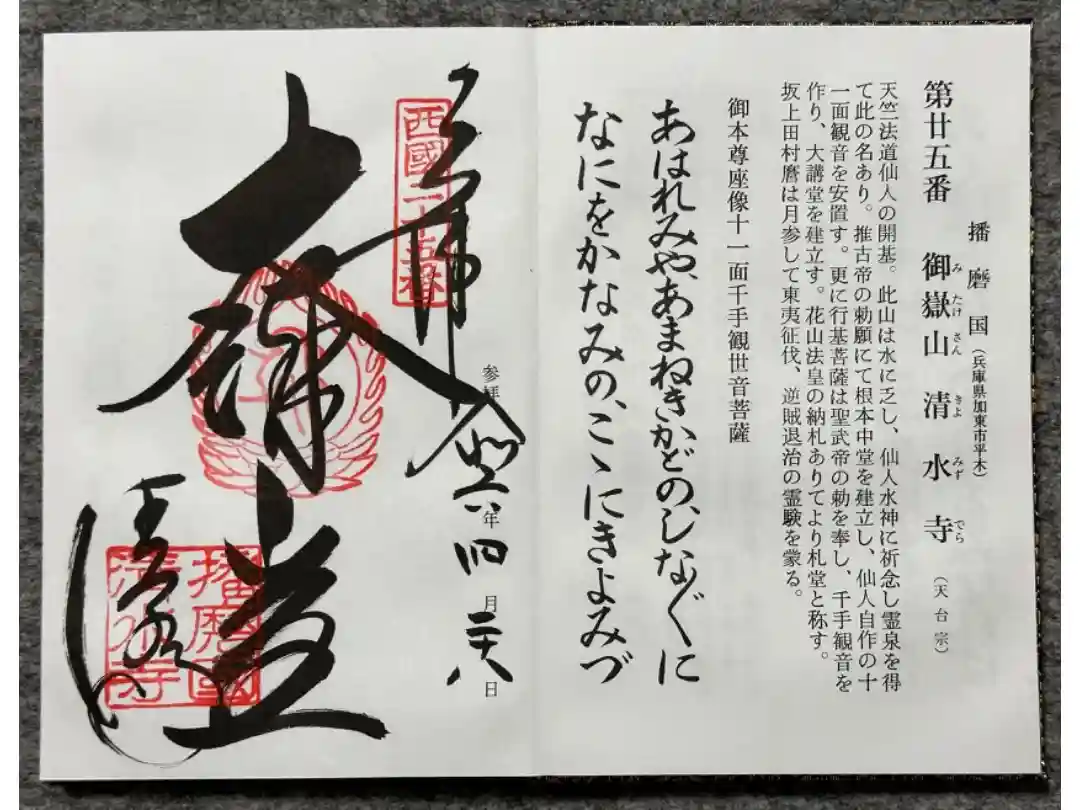 播磨国(兵庫県加東市平木)
第廿五番 御嶽山 清水寺(天台宗)
み たけ さん きよ みず でら
天竺法道仙人の開基。此山は水に乏し、仙人水神に祈念し霊泉を得
て此の名あり。推古帝の勅願にて根本中堂を建立し、仙人自作の十
一面観音を安置す。更に行基菩薩は聖武帝の勅を奉し、千手観音を
作り、大講堂を建立す。花山法皇の納札ありてより札堂と称す。
坂上田村麿は月参して東夷征伐、逆賊退治の霊験を蒙る。
御本尊座像十一面千手観世音菩薩
あはれみや、あまねきかどの、しなぐに
なにをかなみの、こゝにきよみづ
参拝 年 四 月 二十八 日
西國二十五番
大講堂
清水寺
播磨國清水寺